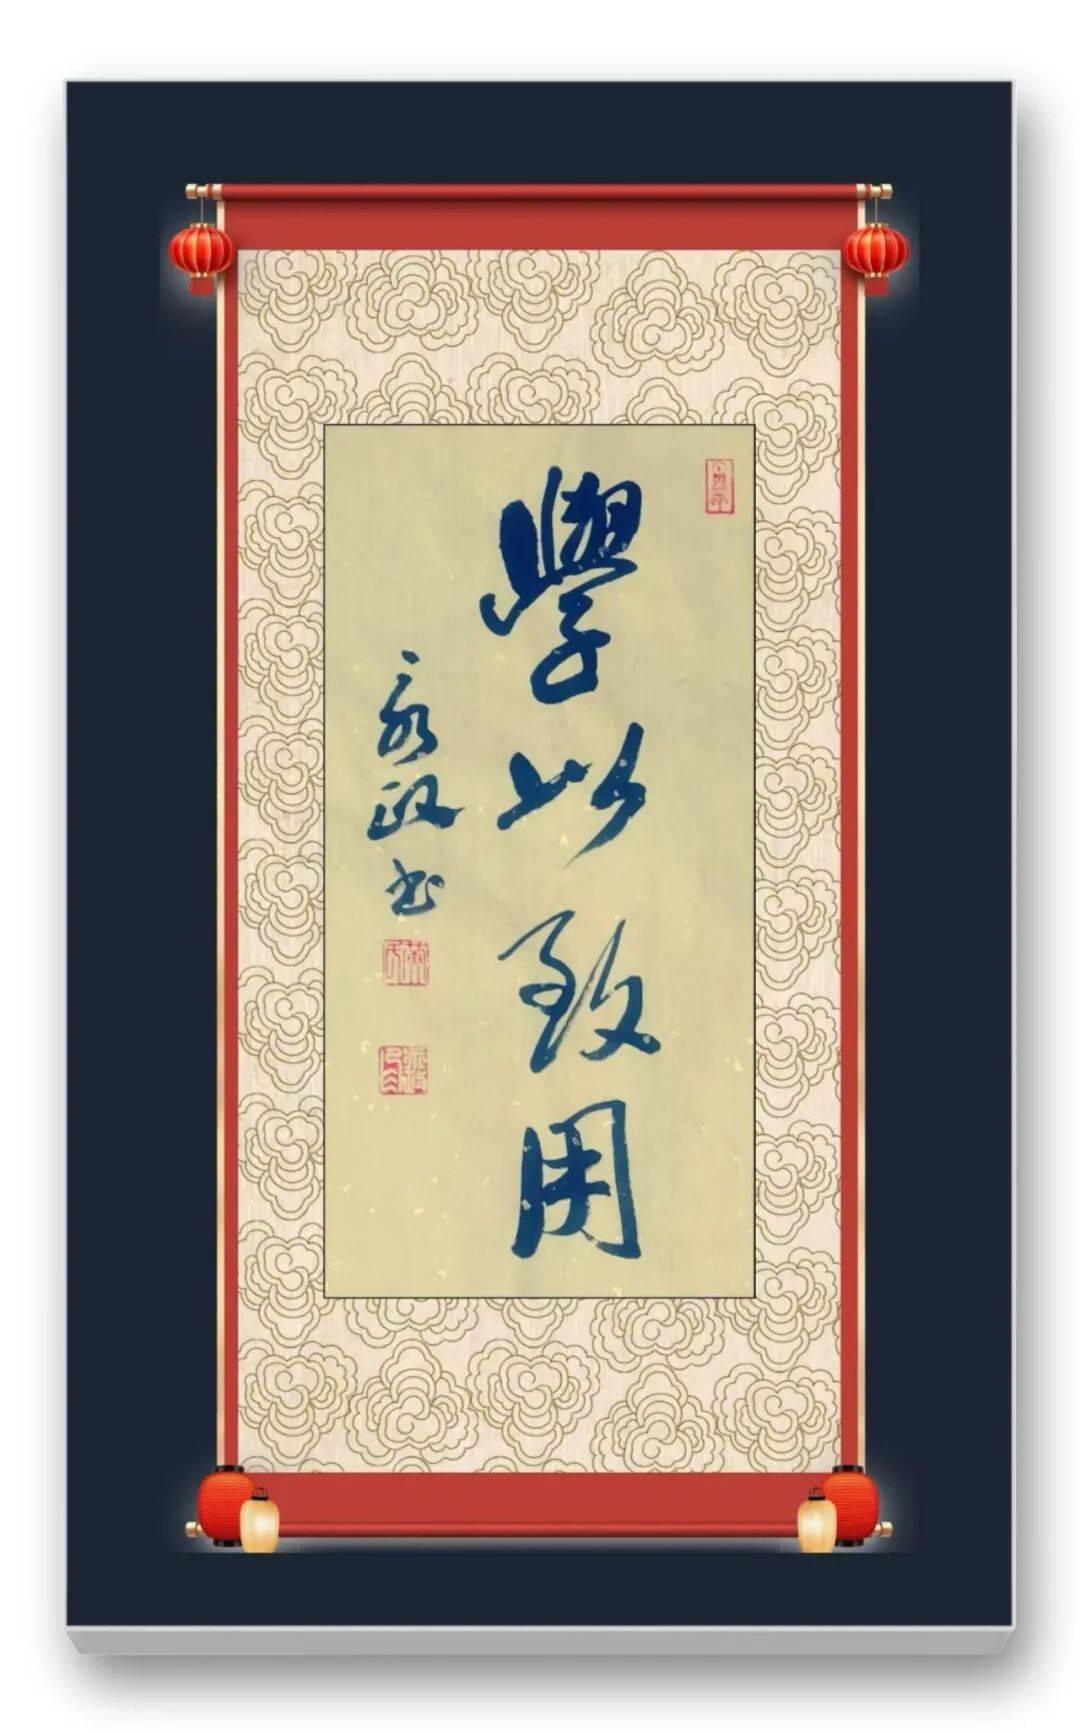 學以致用
永政书